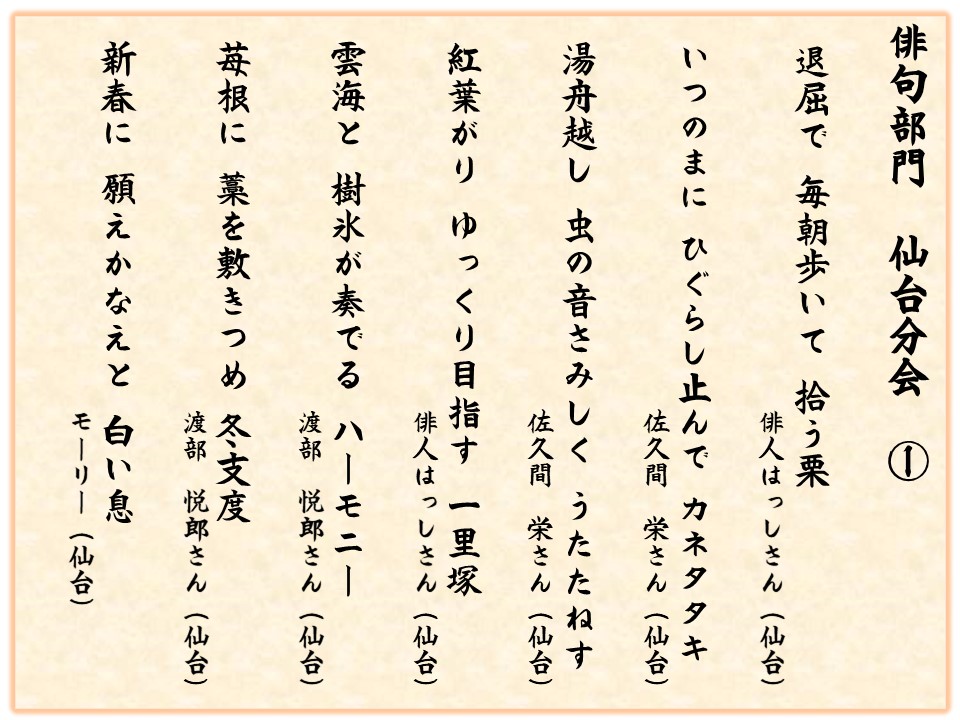 俳句部門　仙台分会　①
退屈で　毎朝歩いて　拾う栗
俳人はっしさん（仙台）
いつのまに　ひぐらし止んで　カネタタキ
佐久間　栄さん（仙台）
湯舟越し　虫の音さみしく　うたたねす
佐久間　栄さん（仙台）
紅葉がり　ゆっくり目指す　一里塚
俳人はっしさん（仙台）
雲海と　樹氷が奏でる　ハーモニー
渡部　悦郎さん（仙台）
苺根に　藁を敷きつめ　冬支度
渡部　悦郎さん（仙台）
新春に　願えかなえと　白い息
モーリー（仙台）